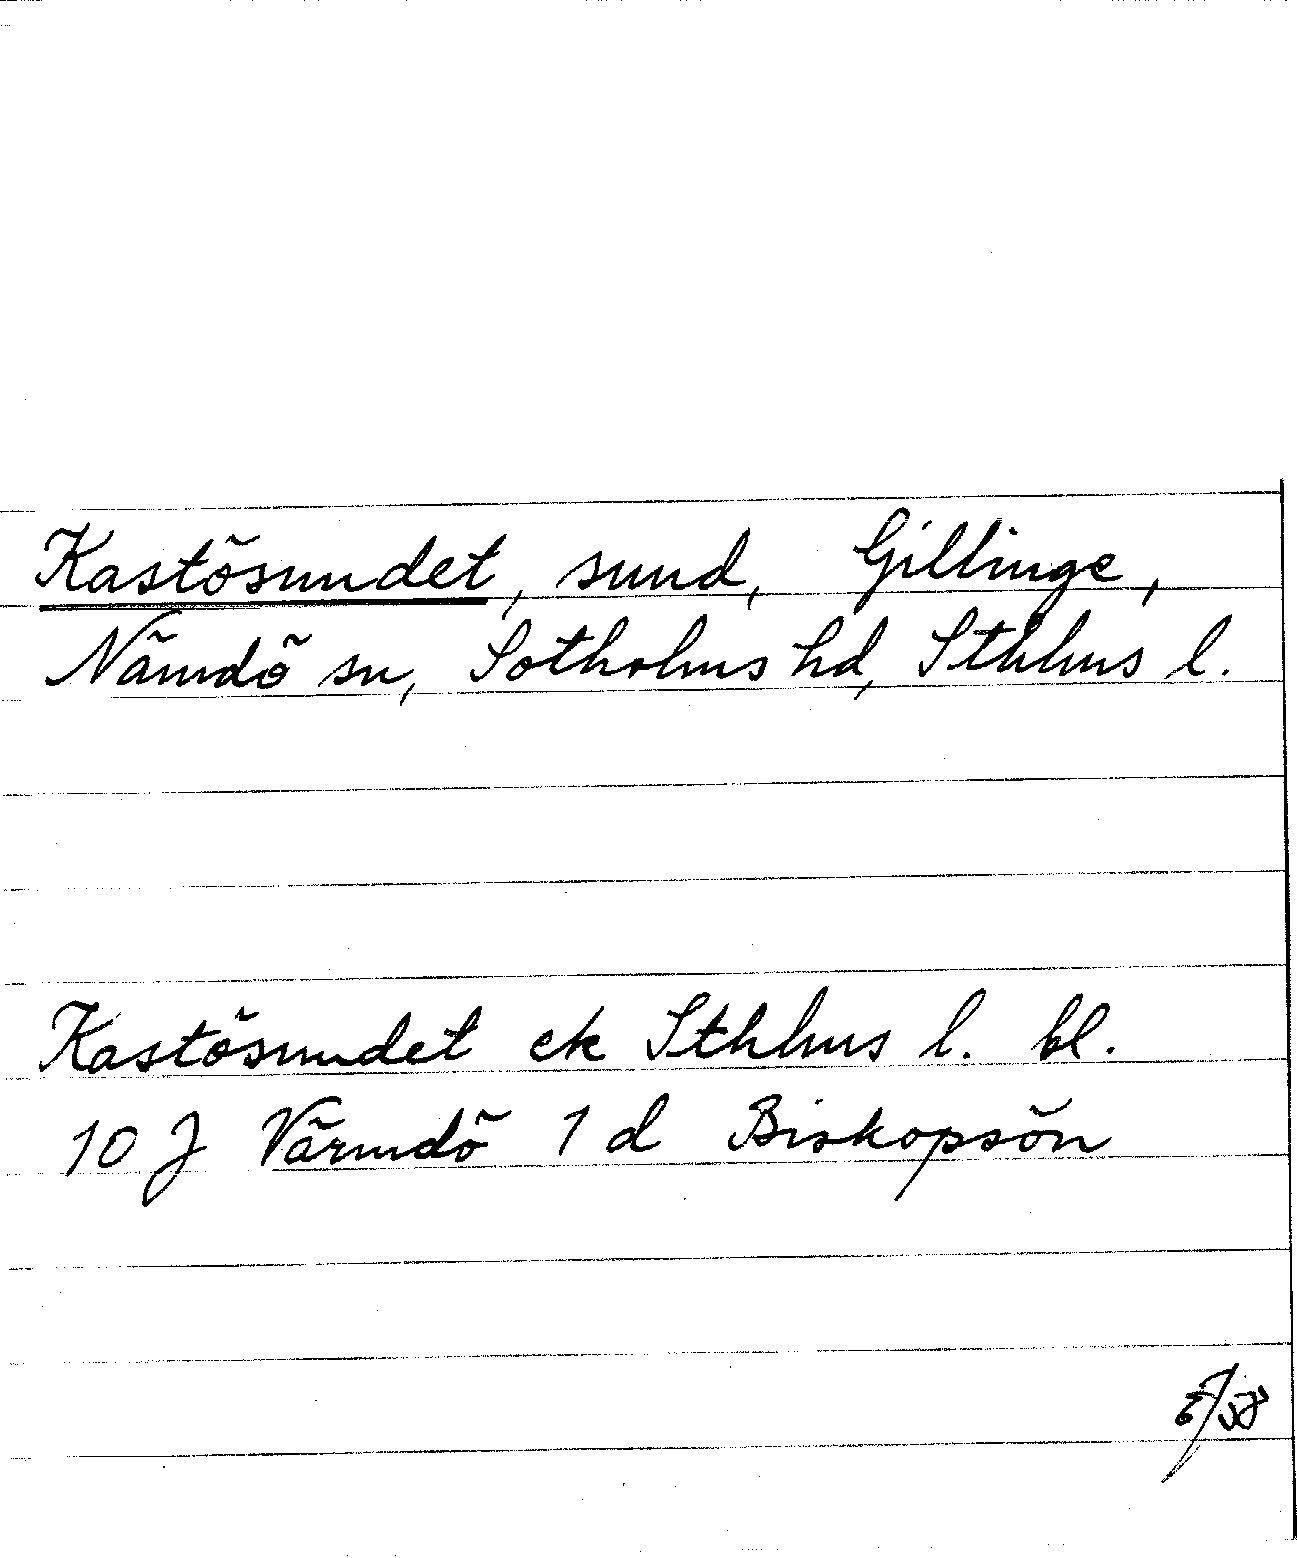 Kastösundet, sund, Gillinge,
Nämdö sn, Sotholms hd, Sthlms l.
Kastösundet ek Sthlms l. bl.
10 J Värmdö 1 d Biskopsön